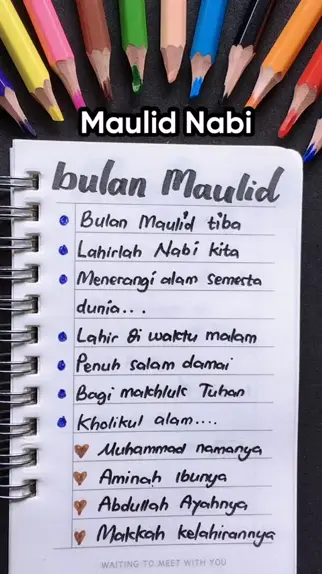 Maulid Nabi
bulan Maulid
Bulan Maulid tiba
Lahirlah Nabi kita
Menerangi alam semesta
dunia...
Lahir di waktu malam
Penuh salam damai
Bagi makhluk Tuhan
Kholikul alam....
Muhammad namanya
Aminah ibunya
Abdullah Ayahnya
Makkah kelahirannya
WAITING TO MEET WITH YOU